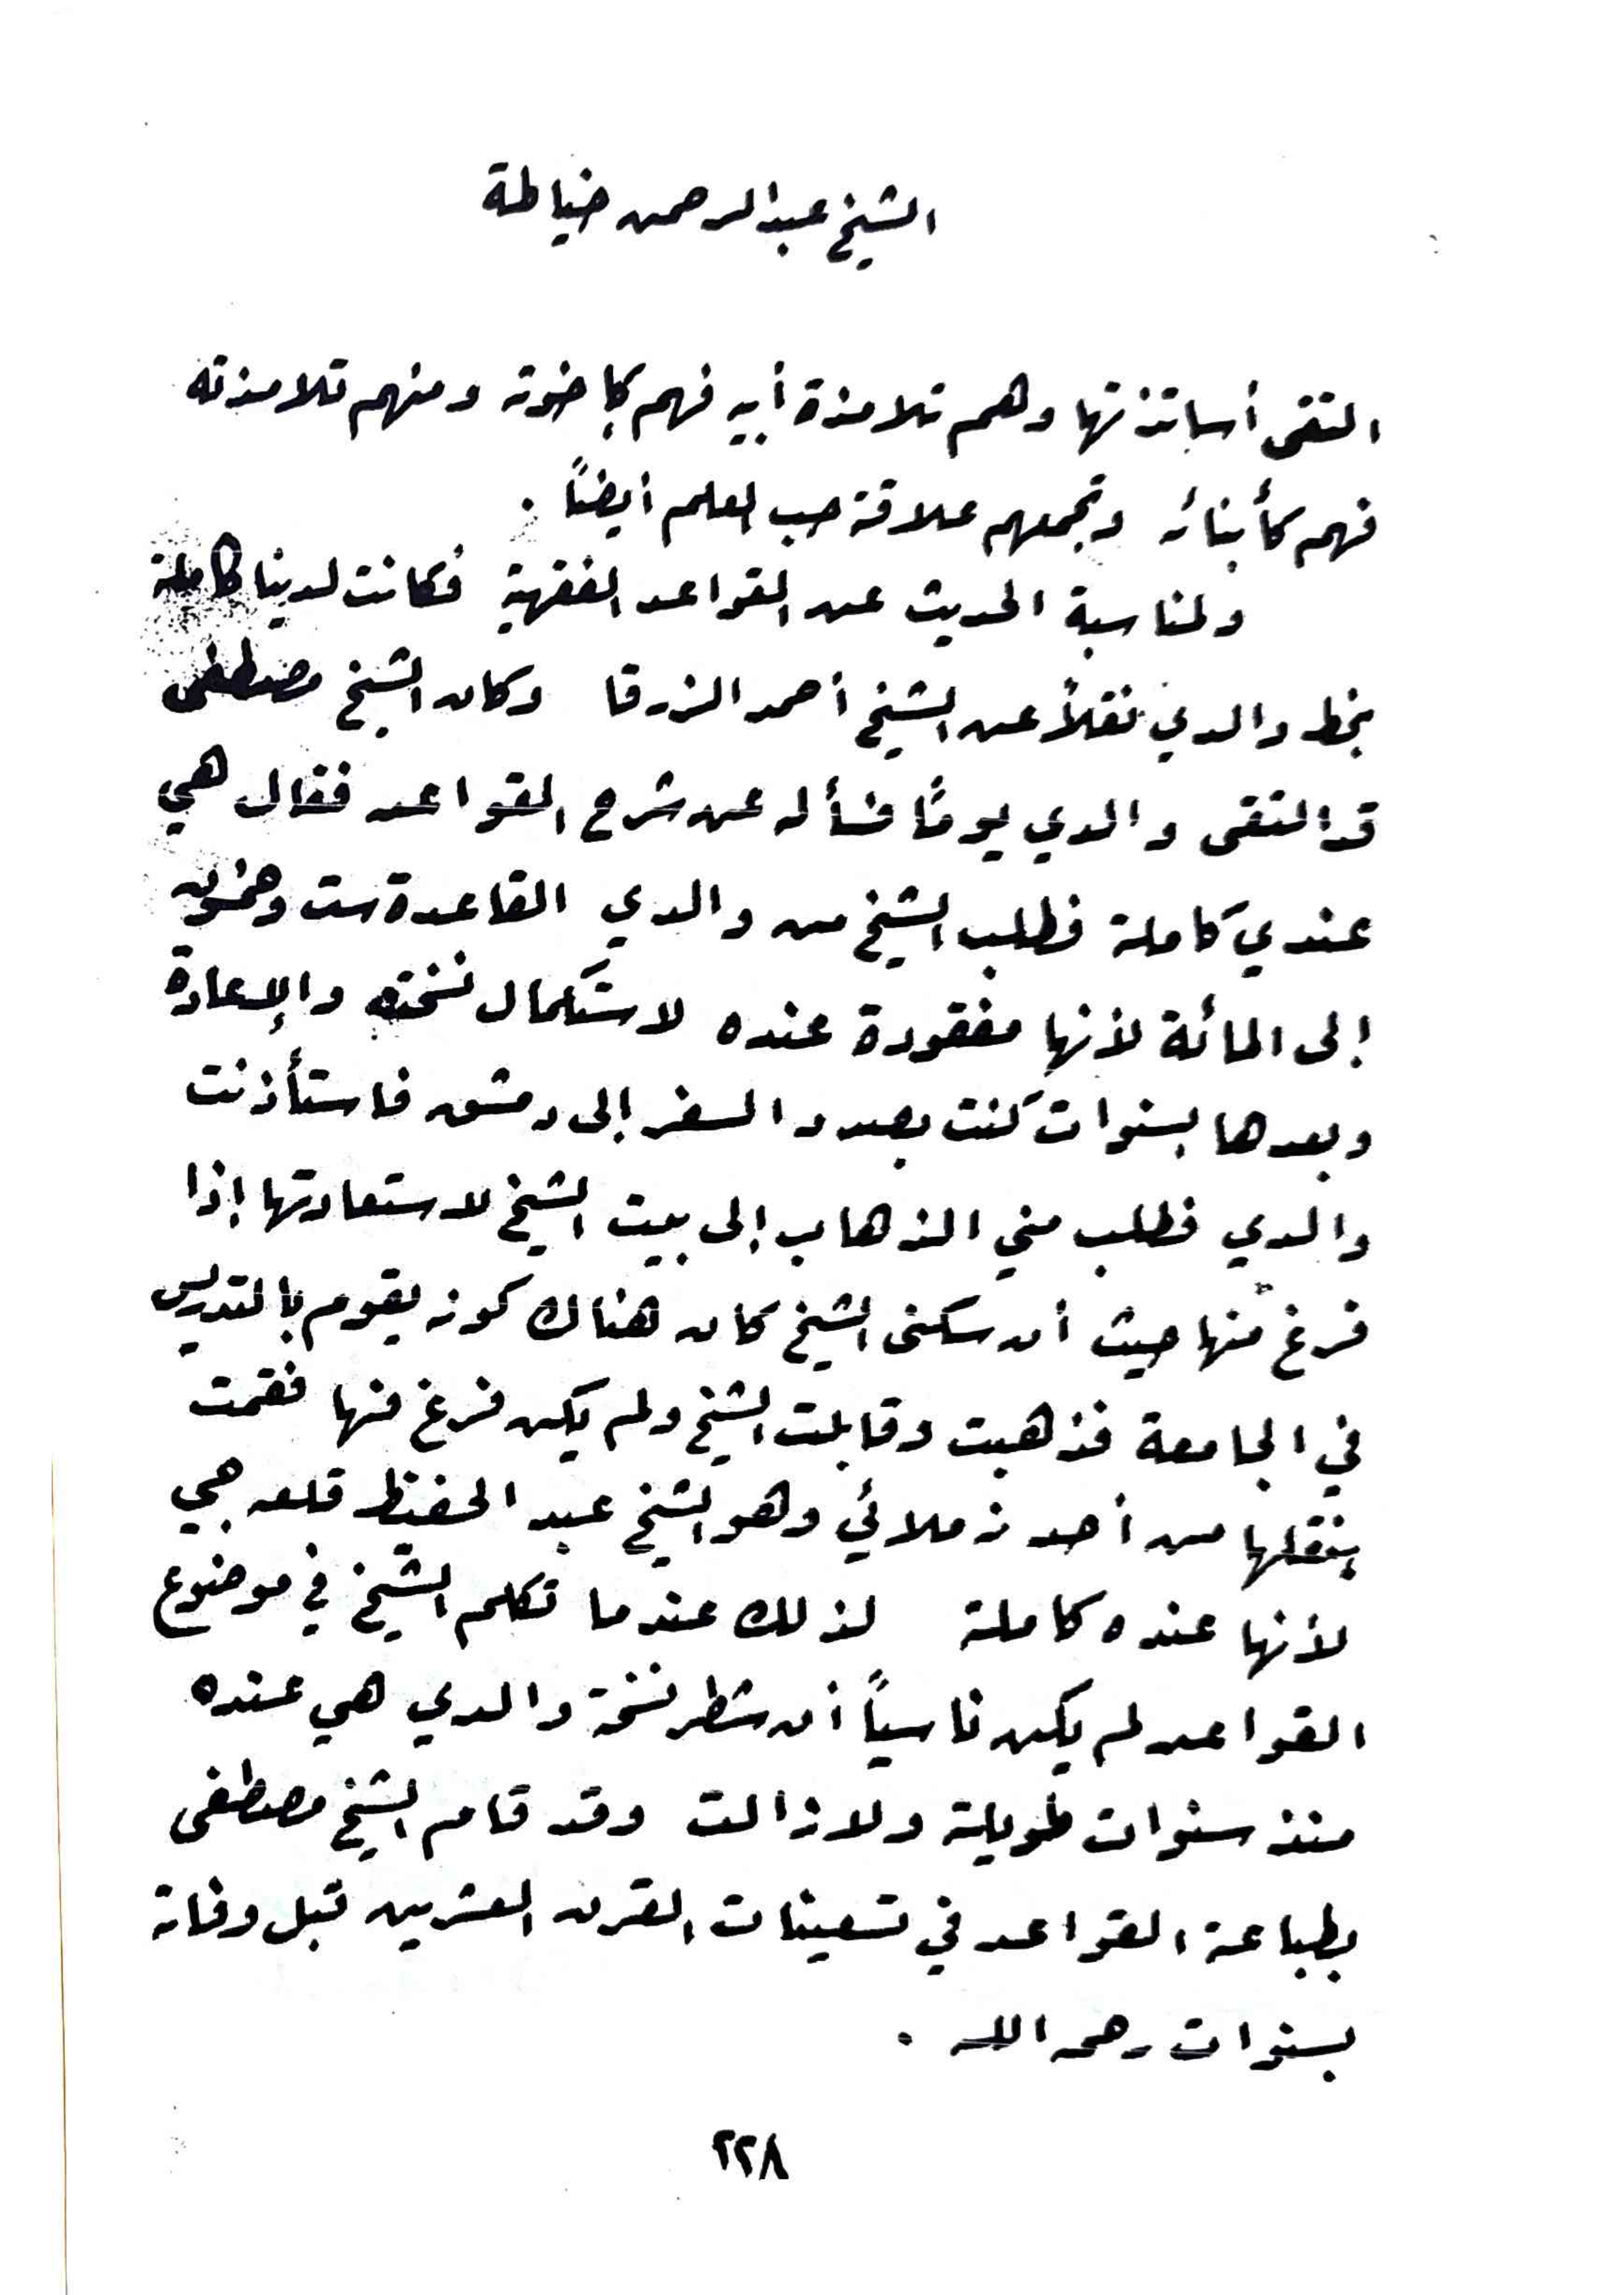 الشيخ عبدالرحمن خياطة
التقى أساتذتها وهم تلامذة أبيه فهم كإخوته ومنهم تلامذته
فهم كأبنائه وتجمعهم علاقة حب العلم أيضاً .
ولمناسبة الحديث عن القواعد الفقهية فكانت لدينا كاملة
بخط والدي نقلاً عن الشيخ أحمد الزرقا وكان الشيخ مصطفى
قد التقى والدي يوماً فسأله عن شرح القواعد فقال هي
عندي كاملة فطلب الشيخ من والدي القاعدة ست وخمسون
إلى المائة لأنها مفقودة عنده لاستكمال نسخته والإعادة
وبعدها بسنوات كنت بصدد السفر إلى دمشق فاستأذنت
والدي فطلب مني الذهاب إلى بيت الشيخ لاستعادتها إذا
فرغ منها حيث أن سكنى الشيخ كان هناك كونه يقوم بالتدريس
في الجامعة فذهبت وقابلت الشيخ ولم يكن فرغ منها فقمت
بنقلها من أحد زملائي وهو الشيخ عبد الحفيظ قلعه جي
لأنها عنده كاملة لذلك عندما تكلم الشيخ في موضوع
القواعد لم يكن ناسياً أن شطر نسخة والدي هي عنده
منذ سنوات طويلة ولازالت وقد قام الشيخ مصطفى
بطباعة القواعد في تسعينات القرن العشرين قبل وفاته
بسنوات رحمه الله .
٢٢٨